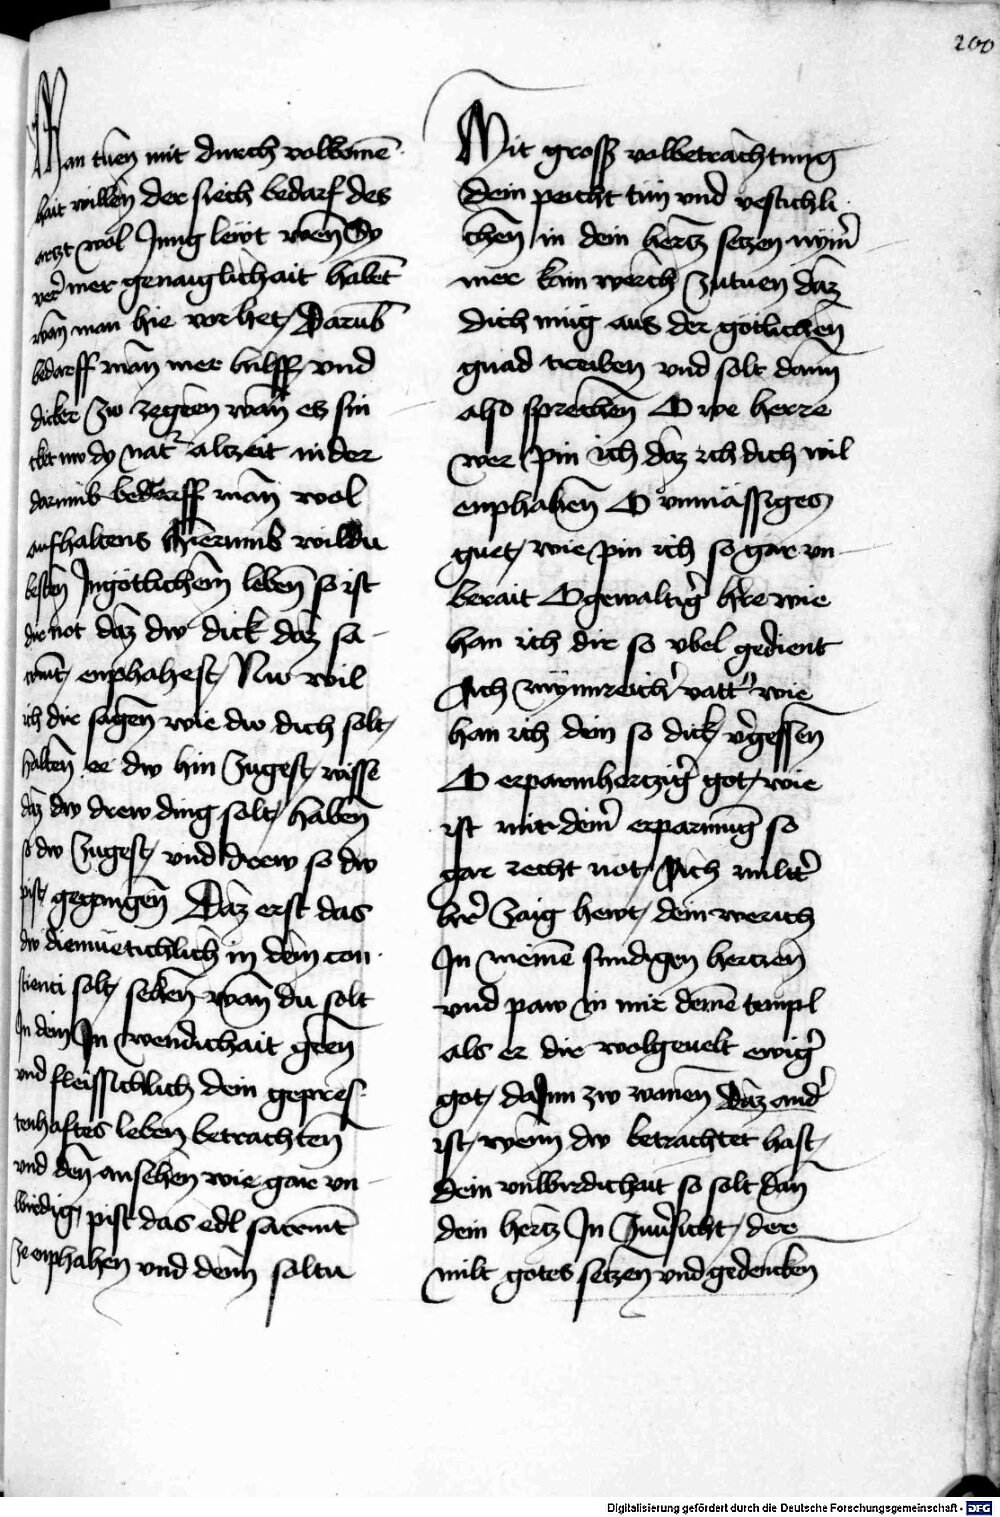 200
Man tuen mit durch volkomē
hait willen der siech bedarf des
artzt wol Jung lewt wen Sy
verͤ mer genaiglichait habēt
wan man hie vor het / Darūb
bedarff man mer hilff und
dicker zw zegeen wan es sin
dy nat̉ alzeit nider
darumb bedarff man wol
aufhaltens hierumb wildu
besten Jn gotlichem leben so ist
die not daz dw dick daz sa
cmēt enphahest / Nw wil
ich dir sagen wie dw dich solt
halten ee dw hin zugest / wisse
daz dw drew ding solt haben
so dw zugest / und drew so dw
pist gegangen Daz erst das
dw diemuetichlich in dein con
scienci solt sehen wan du solt
Jn dein Jn wendichait geen
und fleissichlich dein gepres
tenhaftes leben betrachten
und den ansehen wie gar vn
wirdig pist das edl sacmēt
ze enphahen und denn soltu
Mit gross volbetrachtung
dein peicht tun und vestichli
chen in dein hertz setzen nym̉
mer kain werch zutuen daz
dich mug aus der gotlichen
gnad treiben und solt dann
also sprechen O we herre
wer pin ich daz ich dich wil
enphahen O vnmässiges
guet / wie pin ich so gar vn
berait O gewaltig̉ hrre wie
han ich dir so vbel gedient
Ach mynnreich̉ vatt̉ wie
han ich dein so dick v̉gessen
O erparmhertzig̉ got / wie
ist mir dein̉ erparmūg so
gar recht not / Ach milt̉
hrē zaig hewt / dein werich
Jn meinē sundigen hertzen
und paw in mir deinē templ
als er dir wolgeuelt ewig̉
got / dasinn zw wonen Daz and̉
ist / wenn dw betrachtet hast
dein vnwirdichait so solt dan
dein hertz Jn zuủsicht / der
milt gotes setzen und gedencken
Digitalisierung gefördert durch die Deutsche Forschungsgemeinschaft - DFG